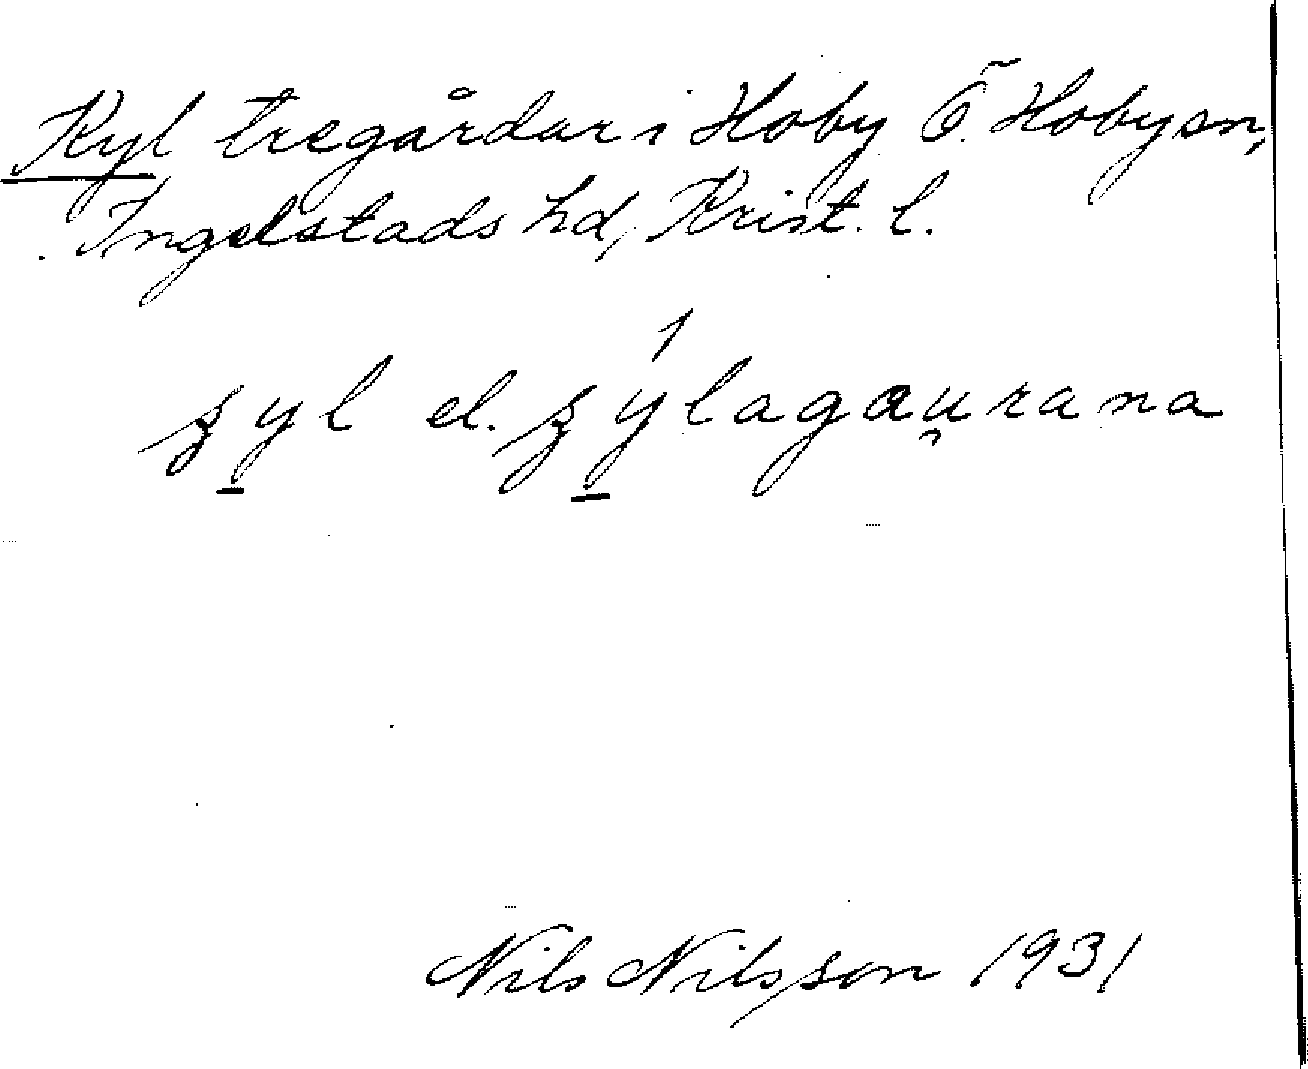 Kyl tregårdar i Hoby Ö. Hoby sn,
Ingelstads hd, Krist. l.
ʒyl el. ʒýlagau̯rana
Nils Nilsson 1931